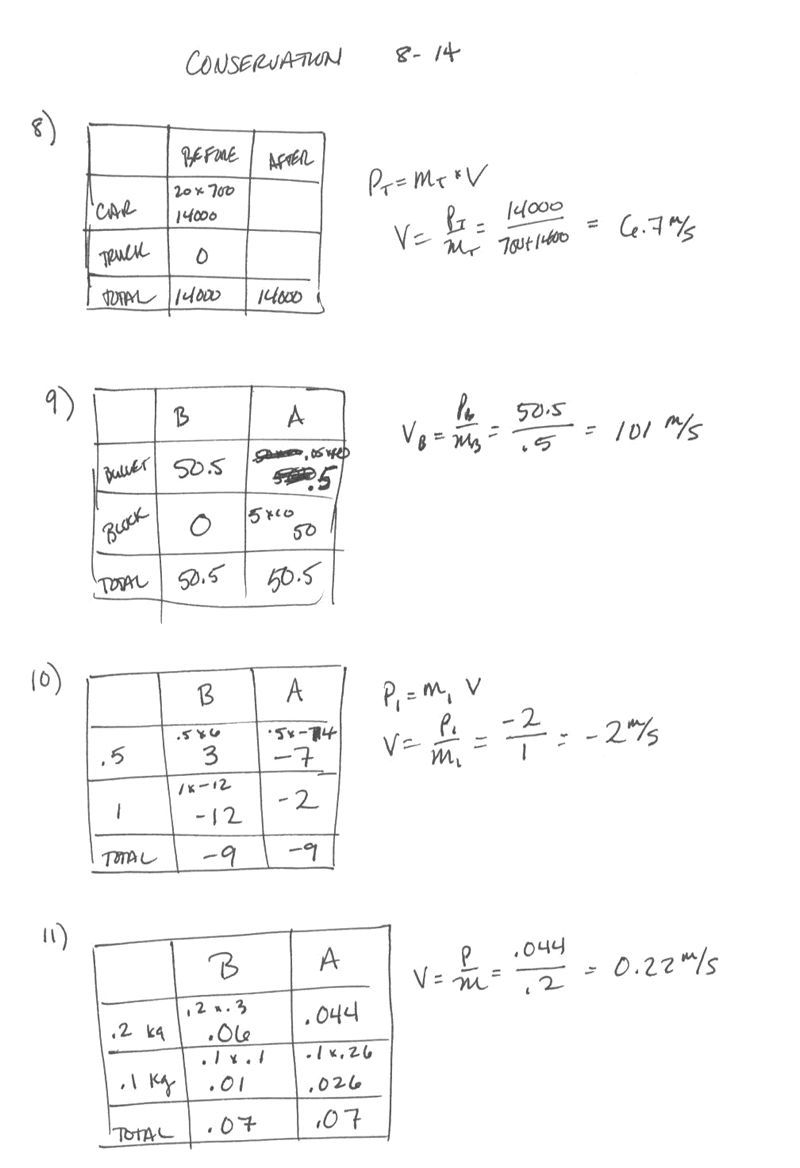 CONSERVATION 8-14
8)
BEFORE AFTER
CAR 20 x 700
14000
TRUCK 0
TOTAL 14000 14000
P_T = m_T * V
V = P_T/m_T = 14000/700+1400 = 6.7 m/s
9)
B A
BULLET 50.5 .5
BLOCK 0 5x10
50
TOTAL 50.5 50.5
V_B = P_b/m_B = 50.5/.5 = 101 m/s
10)
B A
.5 .5x6 .5x-14
3 -7
1 1x-12
-12 -2
TOTAL -9 -9
P_1 = m_1 V
V = P_1/m_1 = -2/1 = -2 m/s
11)
B A
.2 kg .2 x .3
.06 .044
.1 kg .1 x .1 .1 x .26
.01 .026
TOTAL .07 .07
V = P/m = .044/.2 = 0.22 m/s